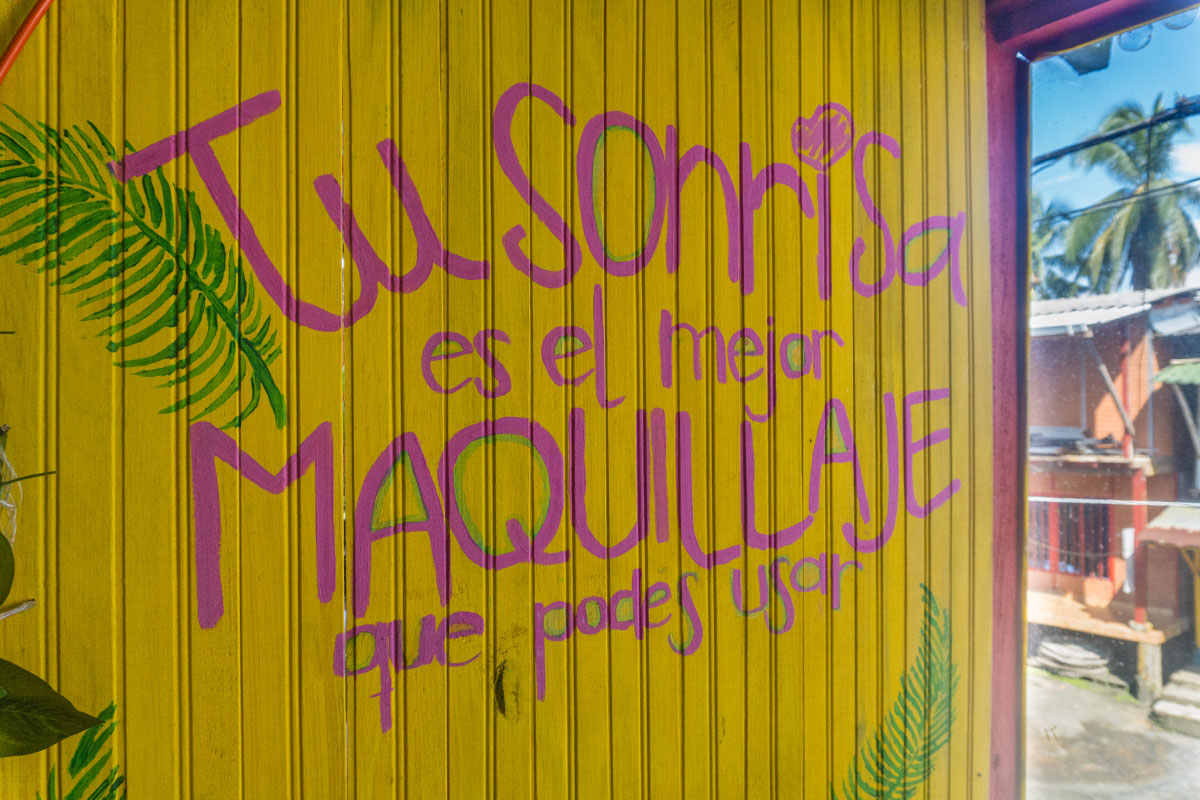 Tu Sonrisa
es el mejor
MAQUILLAJE
que podes usar